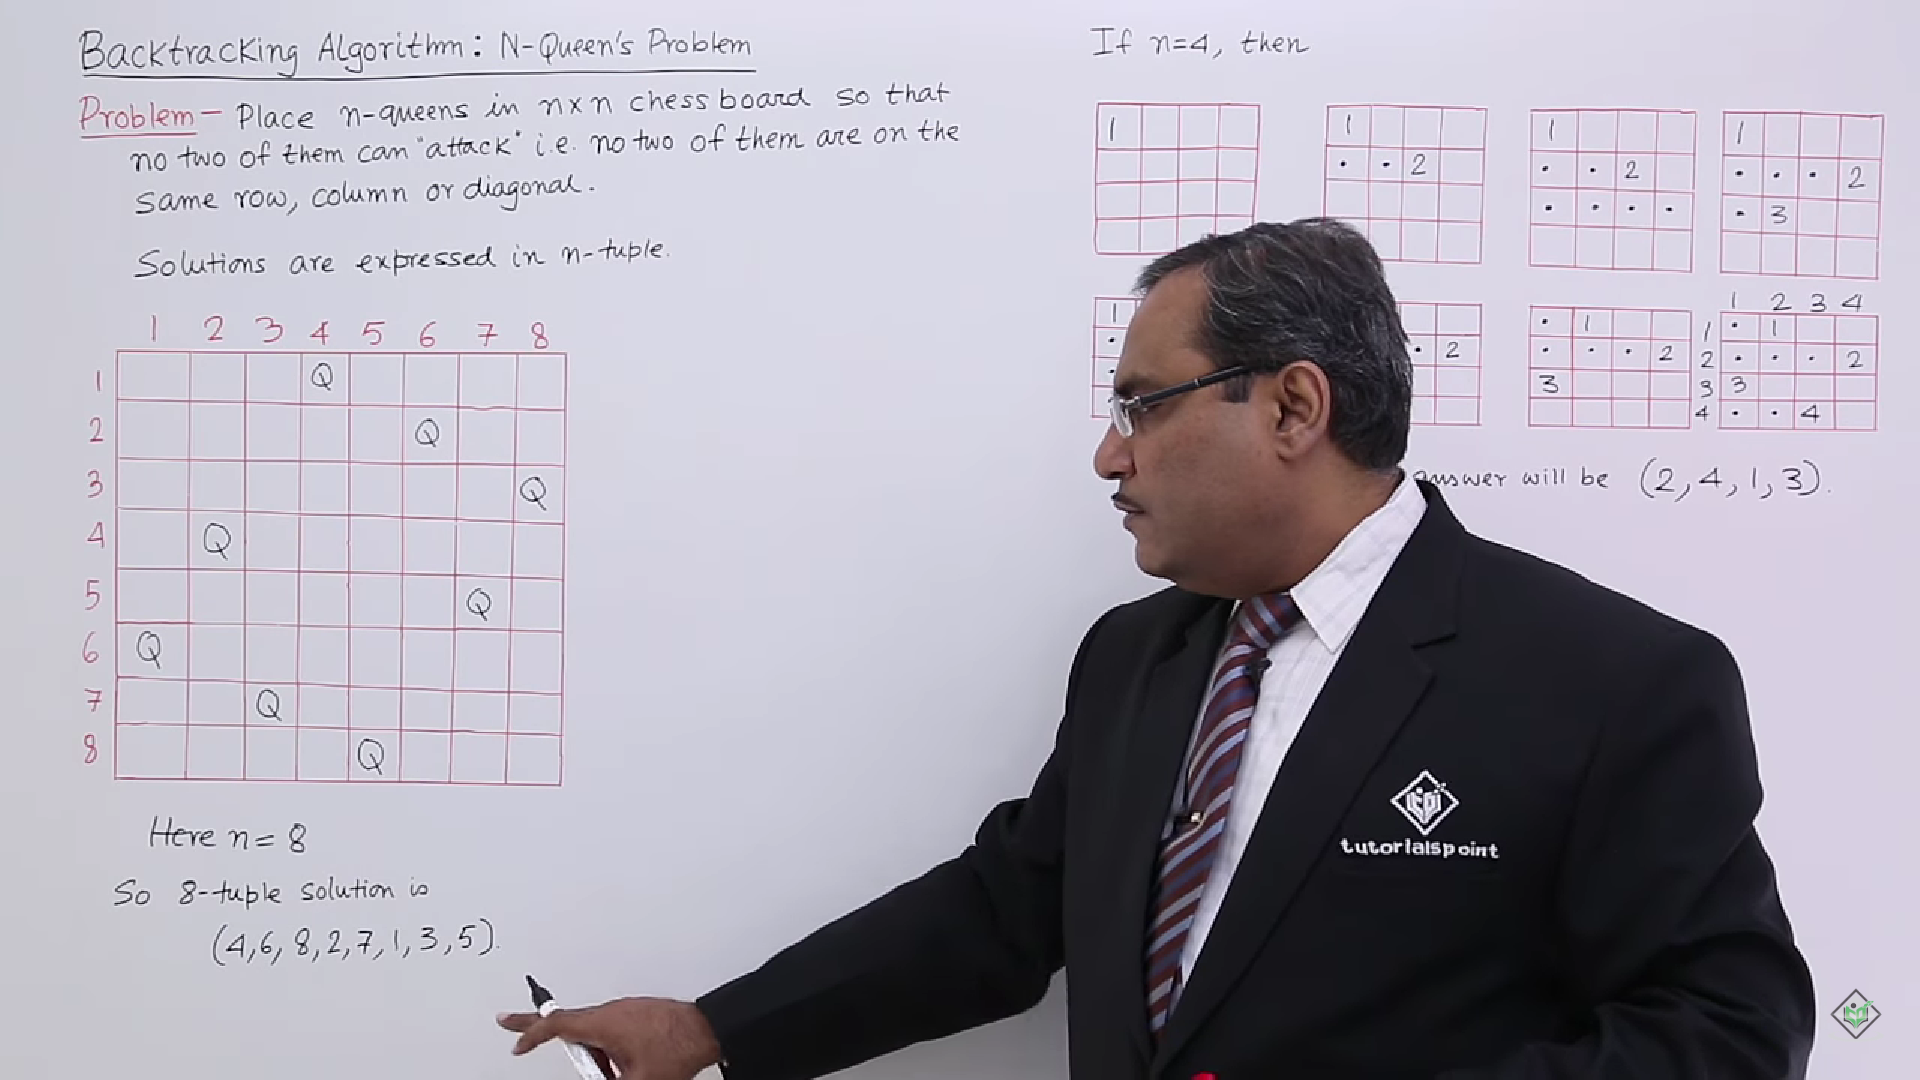 Backtracking Algorithm: N-Queen's Problem
Problem — Place n-queens in n×n chess board so that
no two of them can "attack" i.e. no two of them are on the
same row, column or diagonal.
Solutions are expressed in n-tuple.
1 2 3 4 5 6 7 8
1 Q
2 Q
3 Q
4 Q
5 Q
6 Q
7 Q
8 Q
Here n = 8
So 8-tuple solution is
(4,6,8,2,7,1,3,5).
If n=4, then
1
1
· · 2
1
· · 2
· · · ·
1
· · · 2
· 3
1
·
· 2
· 1
· · · 2
3
1 2 3 4
1 · 1
2 · · · 2
3 3
4 · · 4
answer will be (2,4,1,3).
tutorialspoint